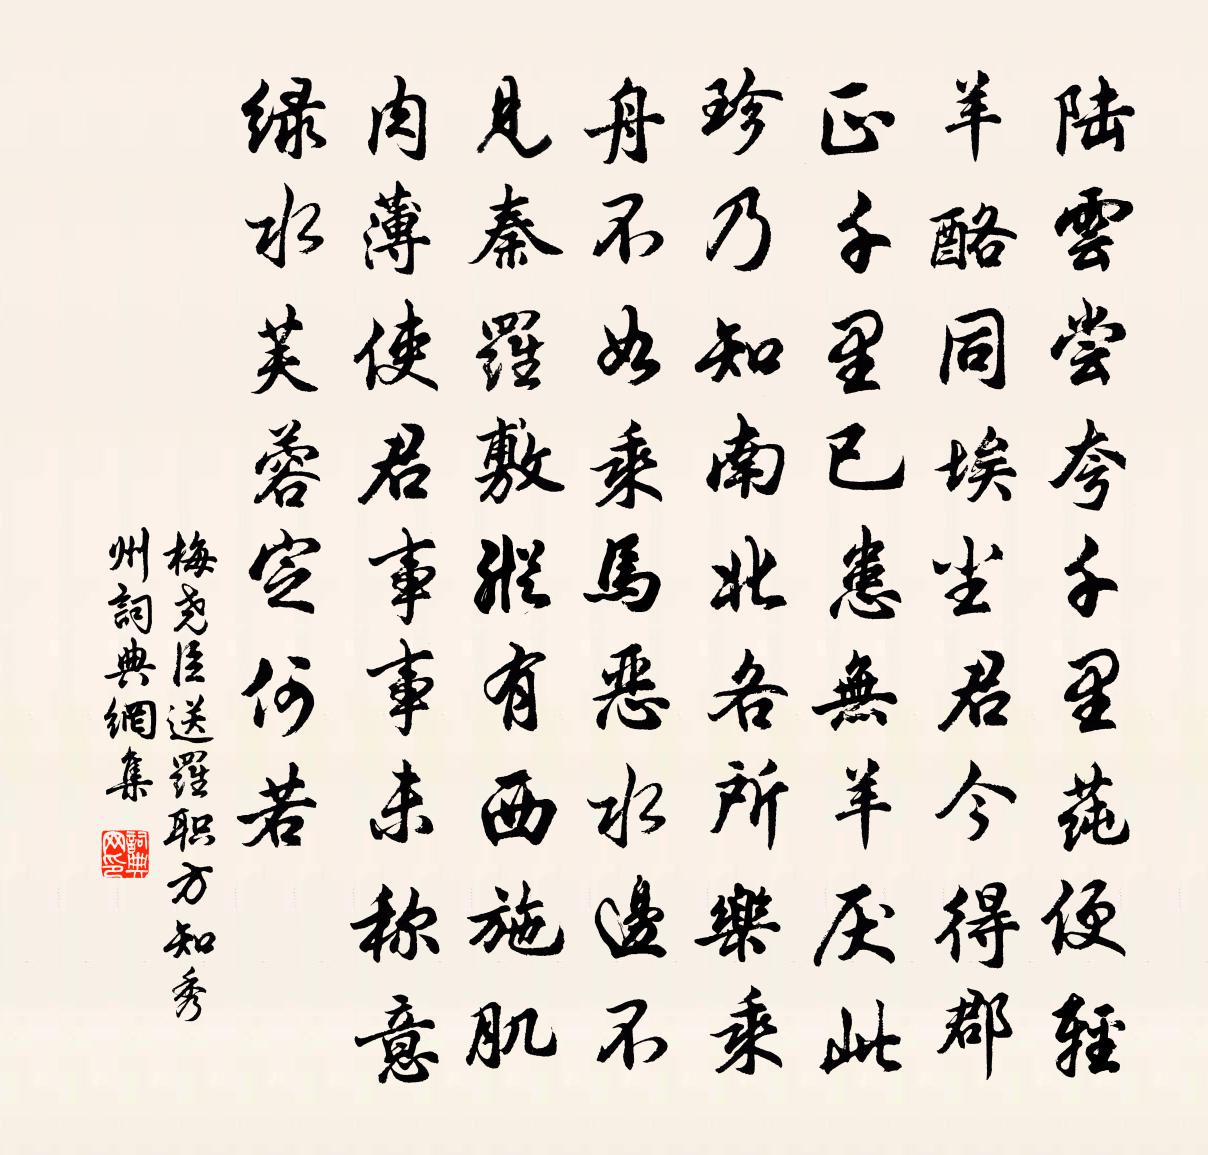 陆雲尝夸千里莼便輕
羊酪同埃坌君今得郡
正千里已患無羊厌此
珍乃知南北各所樂乘
舟不如乘馬恶水邊不
見秦羅敷縱有西施肌
肉薄使君事事未称意
绿水芙蓉定何若
梅尧臣送羅职方知秀
州詞典網集
詞典网印